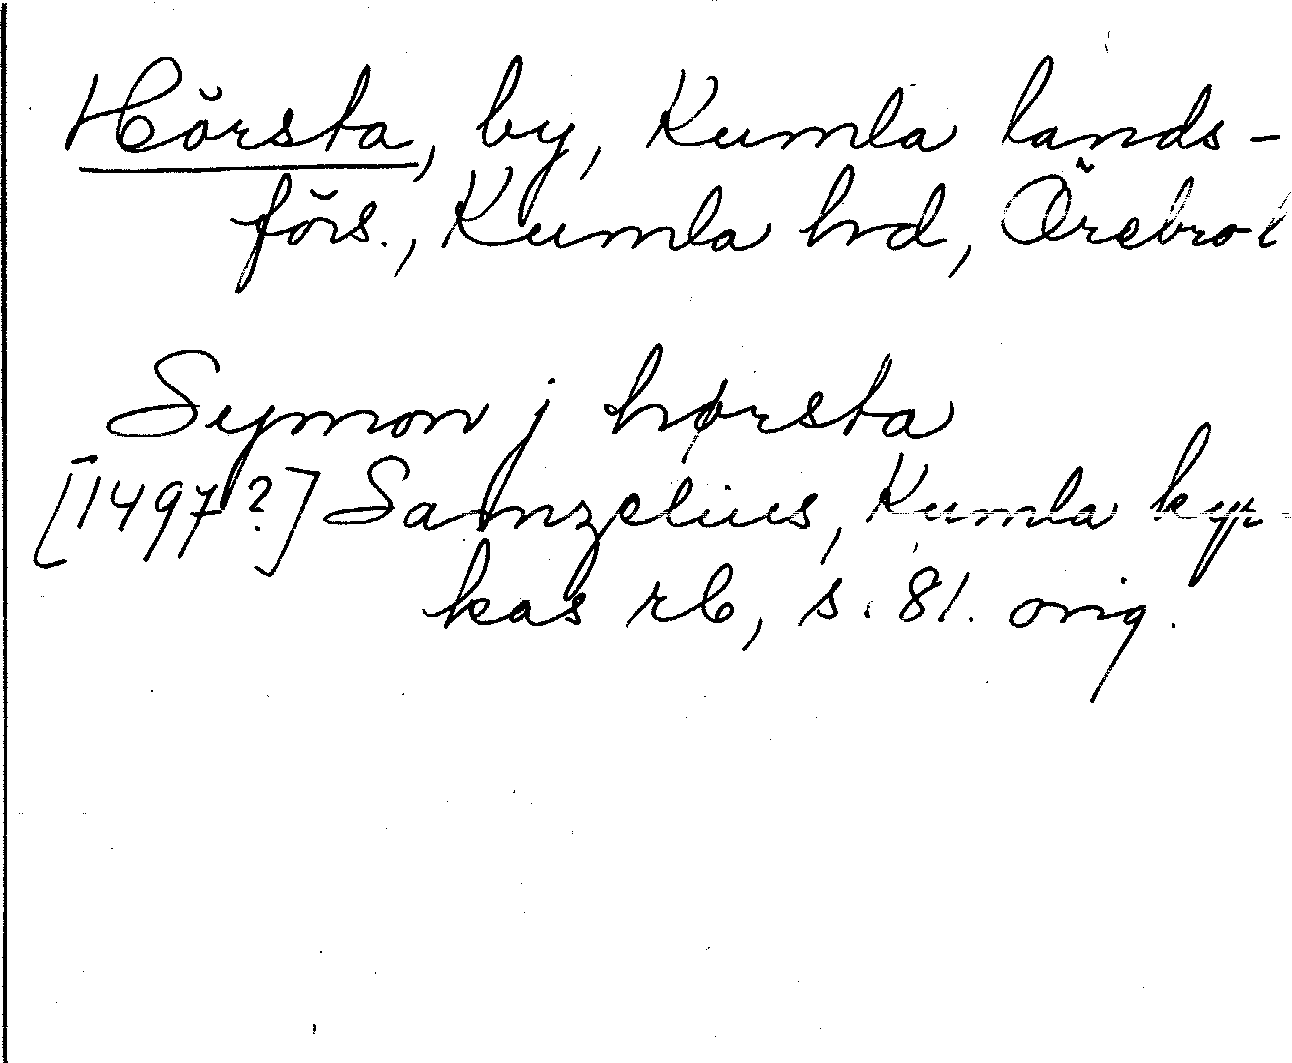 Hörsta, by, Kumla lands-
förs., Kumla hd, Örebro l
Symon j hørsta
[1497?] Samzelius, Kumla kyr-
kas rb, s. 81. orig.